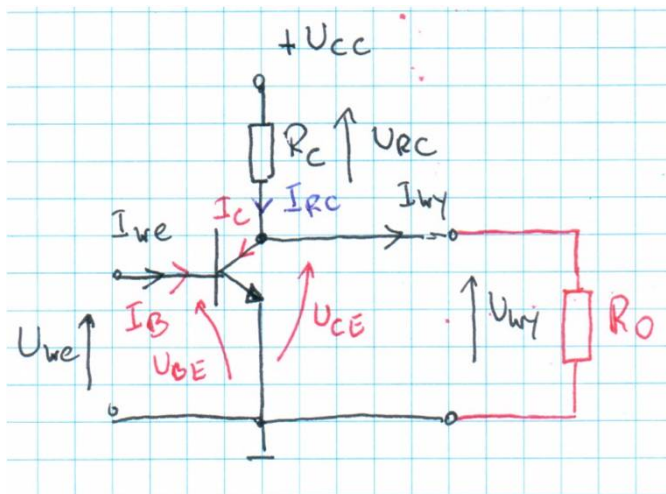 +UCC
RC URC
IC IRC Iwy
Iwe
IB UBE UCE Uwy RO
Uwe